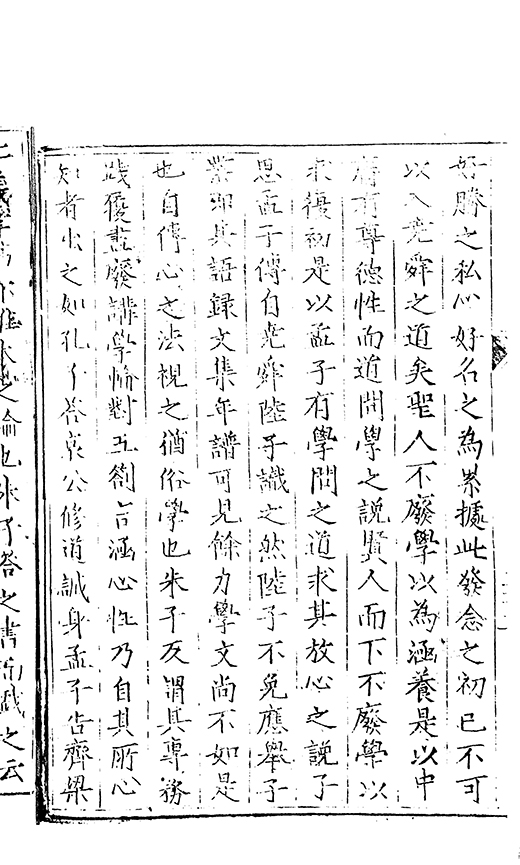 好勝之私心好名之為累據此發念之初已不可
以入堯舜之道矣聖人不廢學以為涵養是以中
庸有尊德性而道問學之說賢人而下不廢學以
求復初是以孟子有學問之道求其放心之說子
思孟子傳自堯舜陸子識之然陸子不免應舉子
業即其語録文集年譜可見餘力學文尚不如是
也自傳心之法視之猶俗學也朱子反謂其專務
踐履盡廢講學輪對五劄言涵心性乃自其所心
知者出之如孔子答哀公修道誠身孟子告齊梁
之論也朱子答之書而譏之云